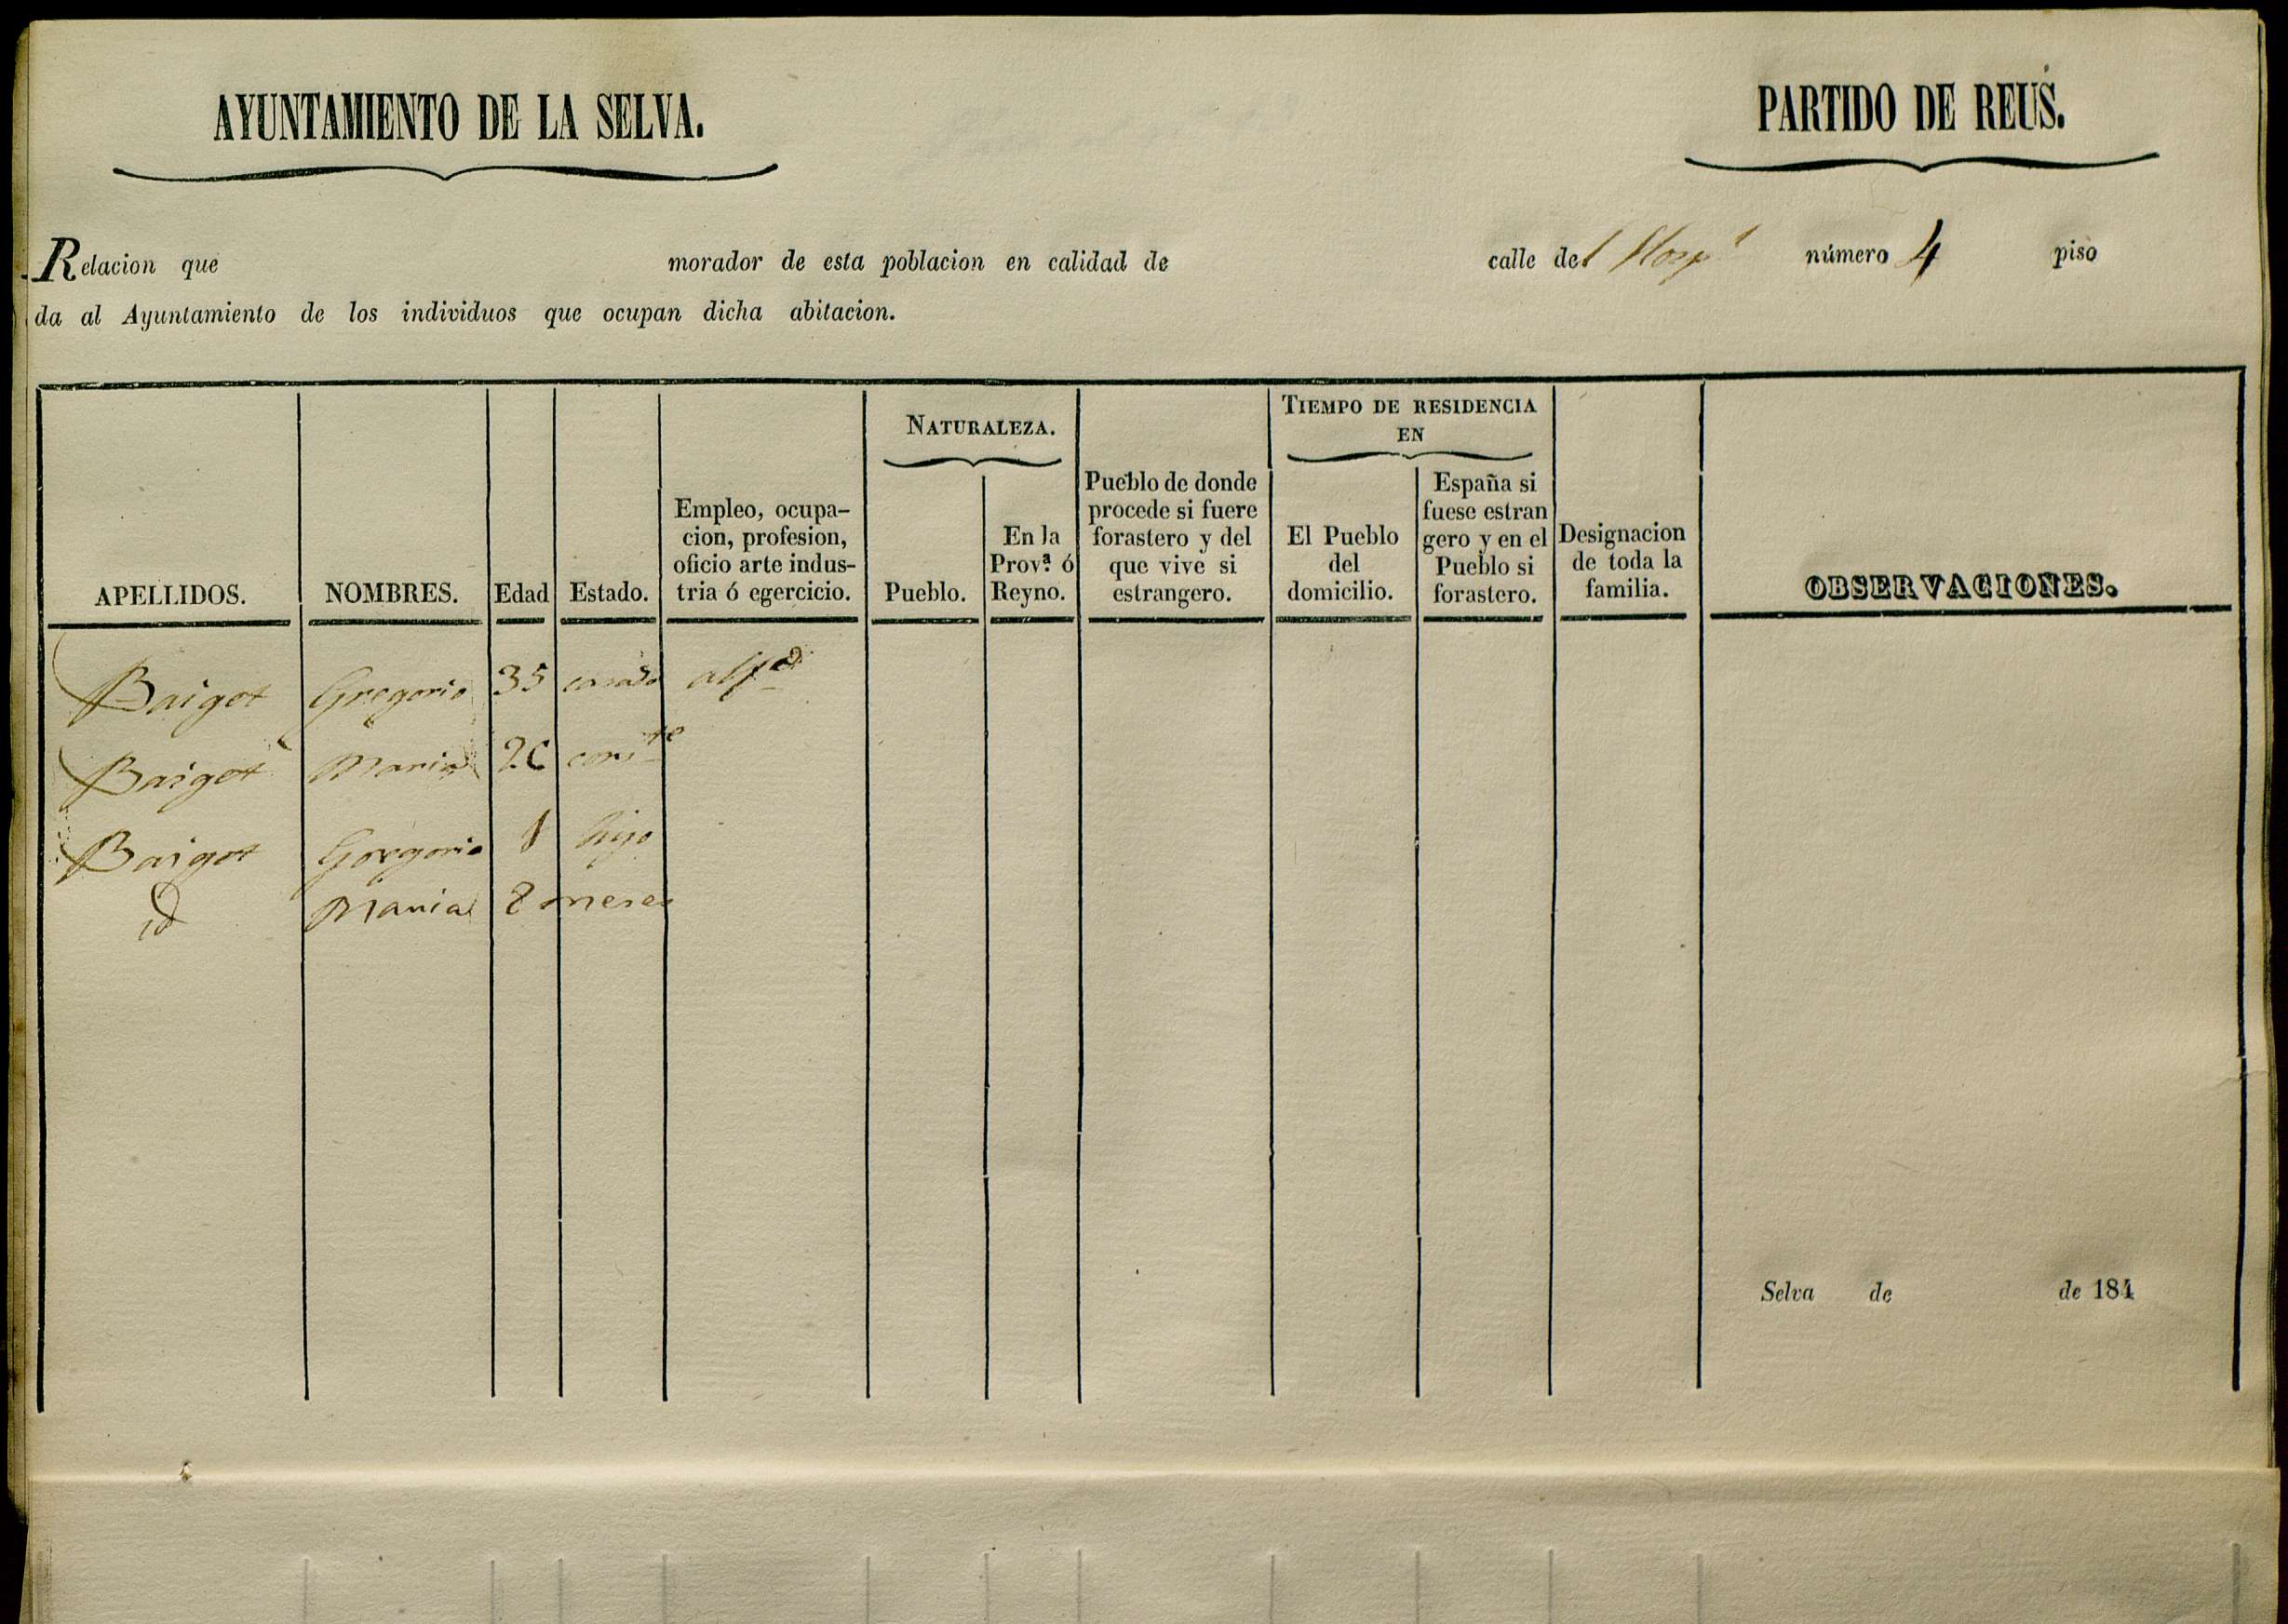 AYUNTAMIENTO DE LA SELVA.
PARTIDO DE REUS.
Relacion que morador de esta poblacion en calidad de calle del Hosp.l número 4 piso
da al Ayuntamiento de los individuos que ocupan dicha abitacion.
NATURALEZA.
TIEMPO DE RESIDENCIA
EN
APELLIDOS.
NOMBRES.
Edad
Estado.
Empleo, ocupa-
cion, profesion,
oficio arte indus-
tria ó egercicio.
Pueblo.
En la
Prov.ª ó
Reyno.
Pueblo de donde
procede si fuere
forastero y del
que vive si
estrangero.
El Pueblo
del
domicilio.
España si
fuese estran
gero y en el
Pueblo si
forastero.
Designacion
de toda la
familia.
OBSERVACIONES.
Baiget Gregorio 35 casado
Baiget Maria
Baiget Gregorio hijo
id Maria 8 meses
Selva de de 184